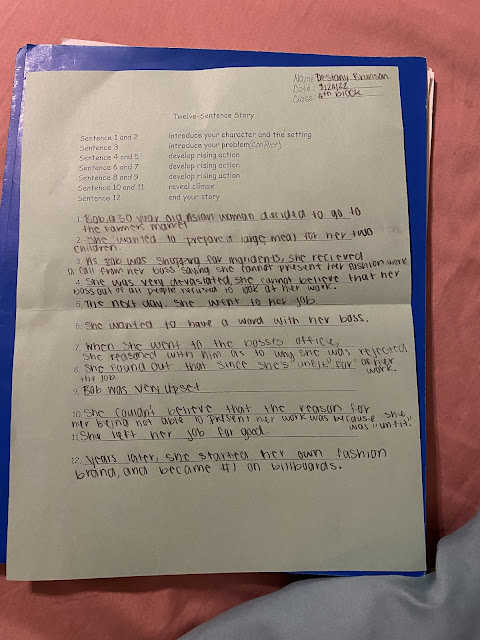 Name: Destany Brunson
Date: 3/24/22
Class: 4th block
Twelve-Sentence Story
Sentence 1 and 2 introduce your character and the setting
Sentence 3 introduce your problem (conflict)
Sentence 4 and 5 develop rising action
Sentence 6 and 7 develop rising action
Sentence 8 and 9 develop rising action
Sentence 10 and 11 reveal climax
Sentence 12 end your story
1. Bob, a 30 year old Asian woman decided to go to
the farmers market
2. She wanted to prepare a large meal for her two
children.
3. As Bob was shopping for ingridents, she recieved
a call from her boss saying she cannot present her fashion work
4. She was very devastated, she cannot believe that her
boss out of all people refused to look at her work.
5. The next day, she went to her job
6. She wanted to have a word with her boss.
7. When she went to the bosses office,
she reasoned with him as to why she was rejected
of her work.
8. She found out that since she's "unfit" for
the job.
9. Bob was very upset
10. She couldnt believe that the reason for
her being not able to present her work was because she
was "unfit".
11. She left her job for good
12. Years later, she started her own fashion
brand, and became #1 on billboards.